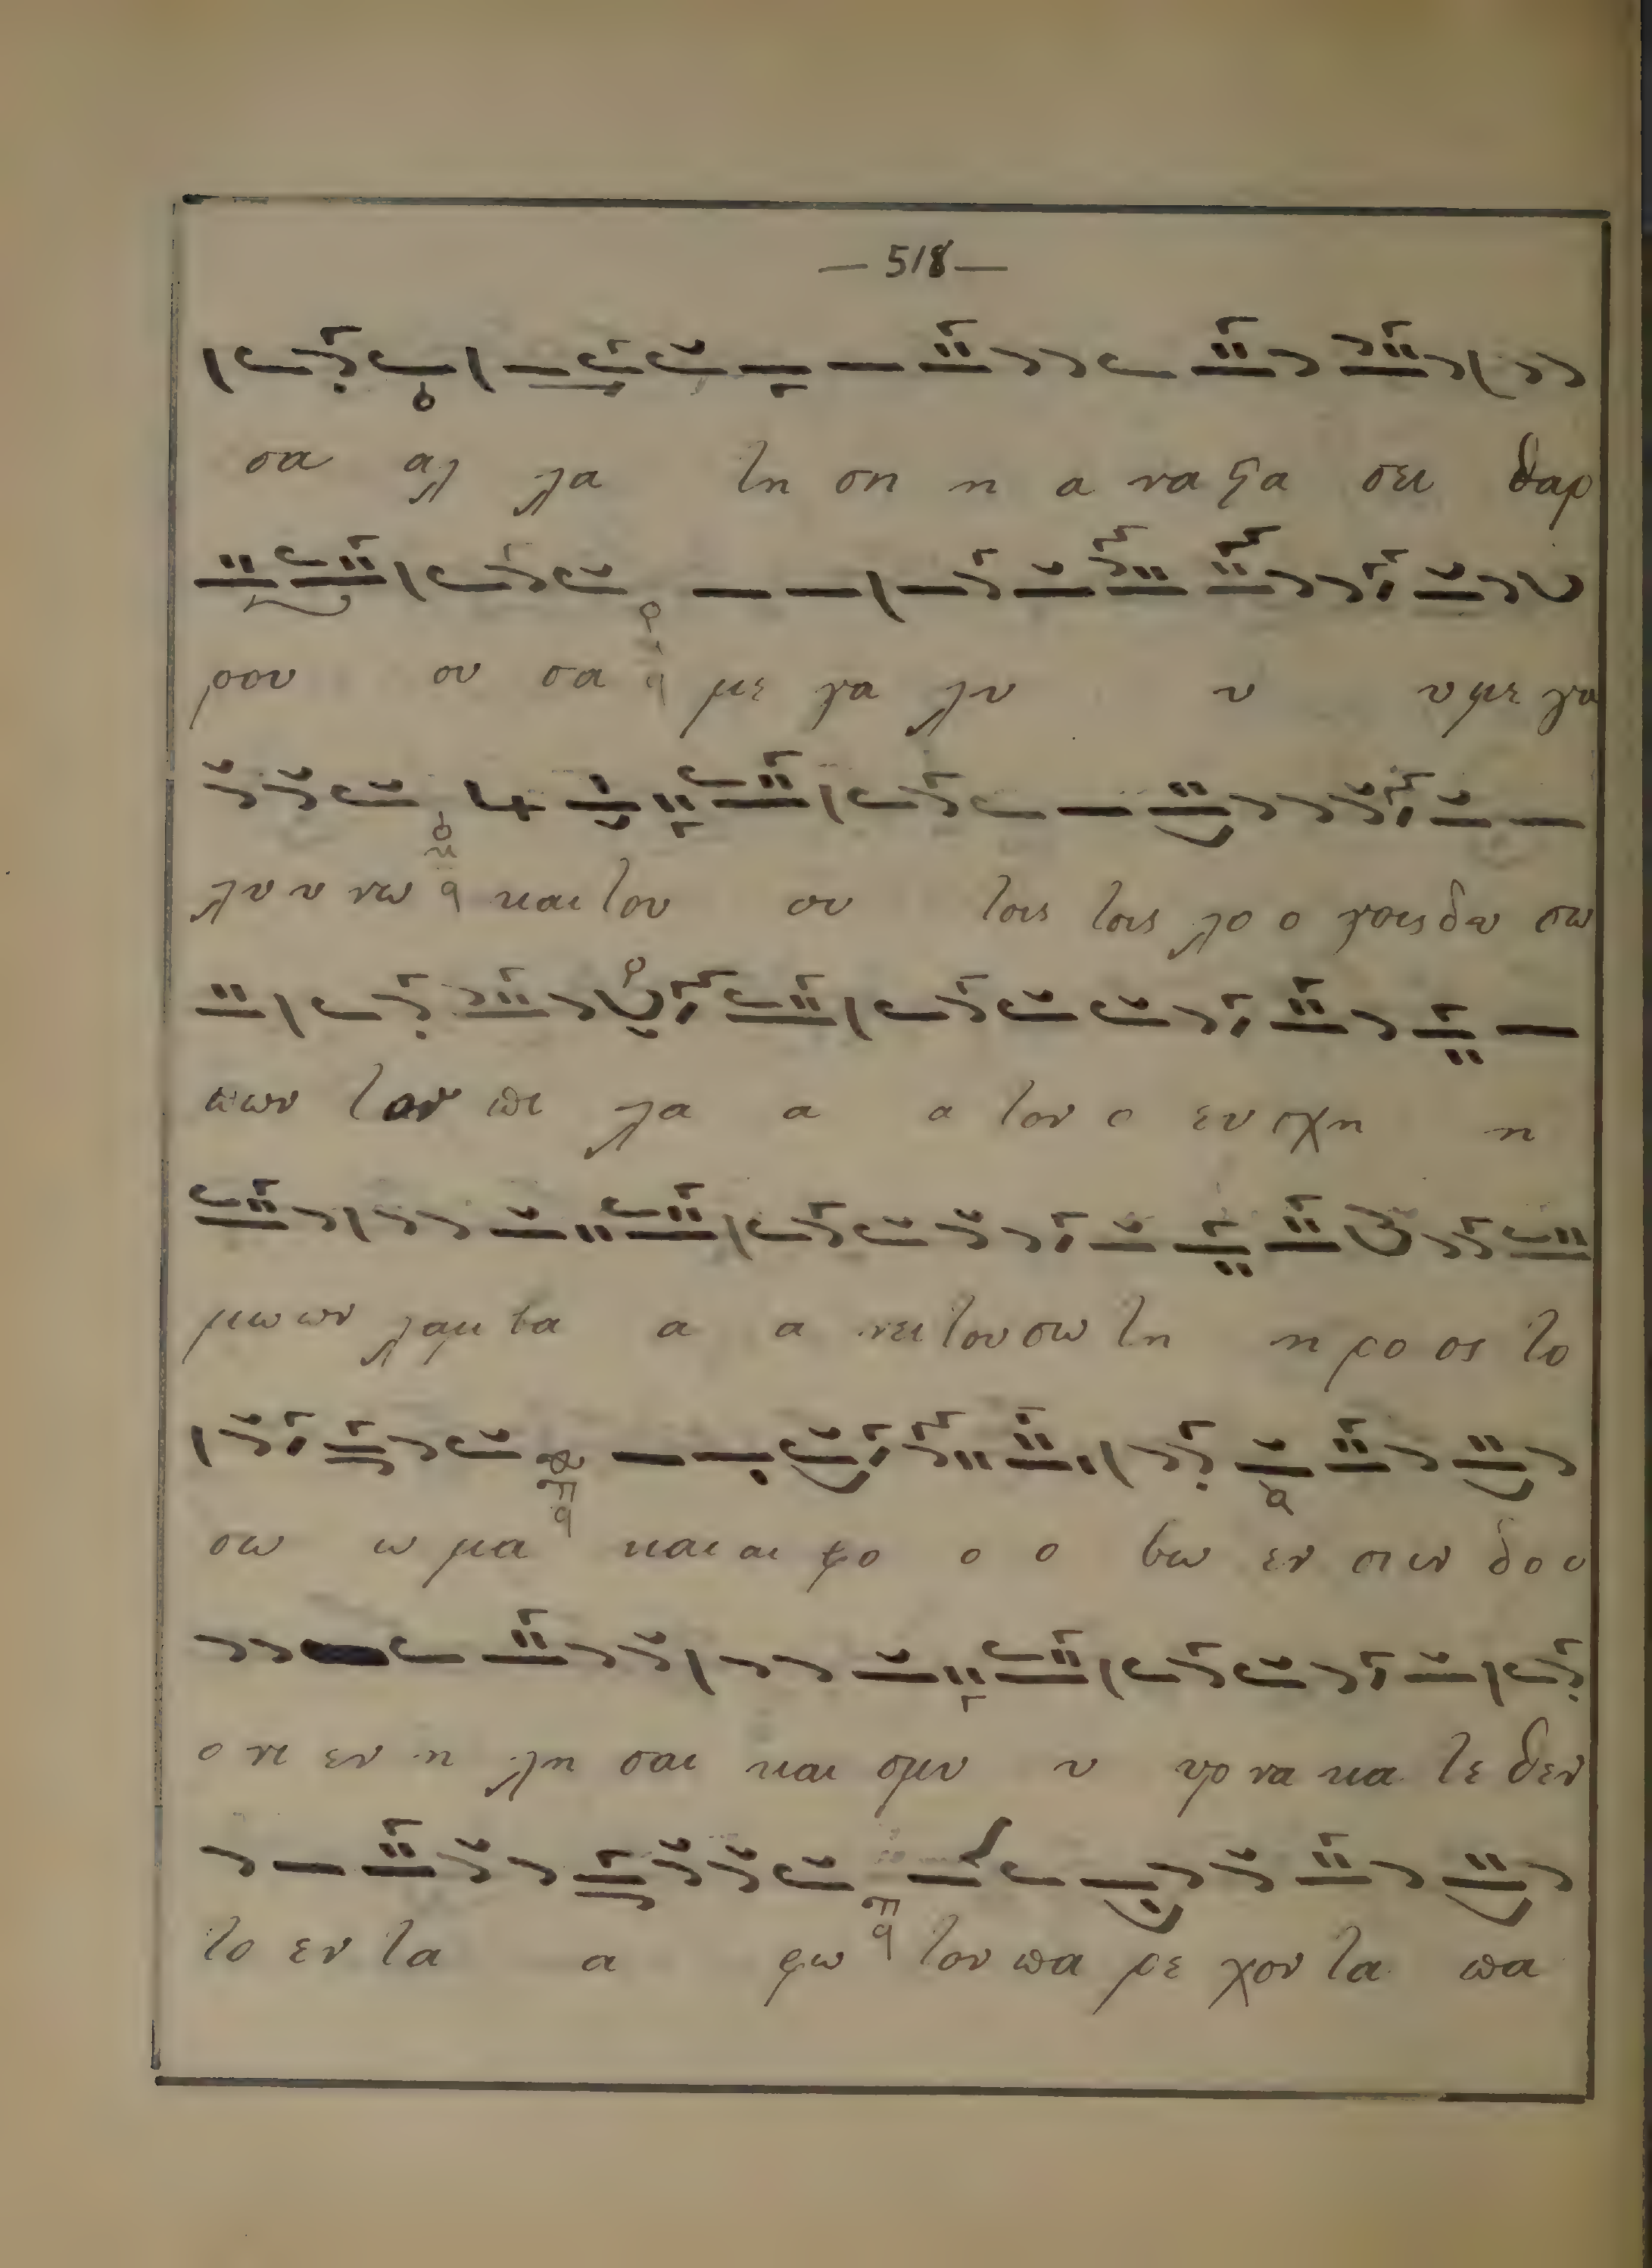 — 518 —
σα αλ λα τη ση η α να ϛα σει θαρ
ρου ου σα με γα λυ υ υ με γα
λυ υ νω και του ου τοις τοις λο ο γοις δυ σω
πων τον πι λα α α τον ο ευ σχη η
μω ων λαμ βα α α νει του σω τη η ρο ος το
σω ω μα και αι φο ο ο βω εν σιν δο ο
ο νι εν η λη σαι και σμυ υ υρ να κα τε θεν
το εν τα α φω τον πα ρε χον τα πα